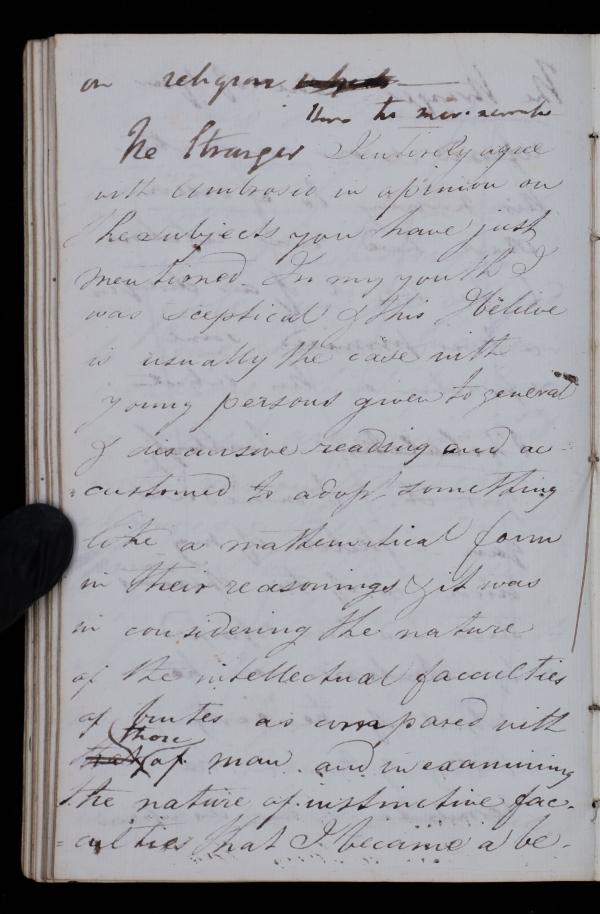 on religion which —
The Stranger I entirely agree
with Ambrosio in opinion on
the subjects you have just
mentioned. In my youth I
was sceptical & this I believe
is usually the case with
young persons given to general
& discursive reading and ac
=customed to adopt something
like a mathematical form
in their reasonings & it was
in considering the nature
of the intellectual faculties
of brutes as compared with
those
that of man and in examining
the nature of instinctive fac-
=culties that I became a be-